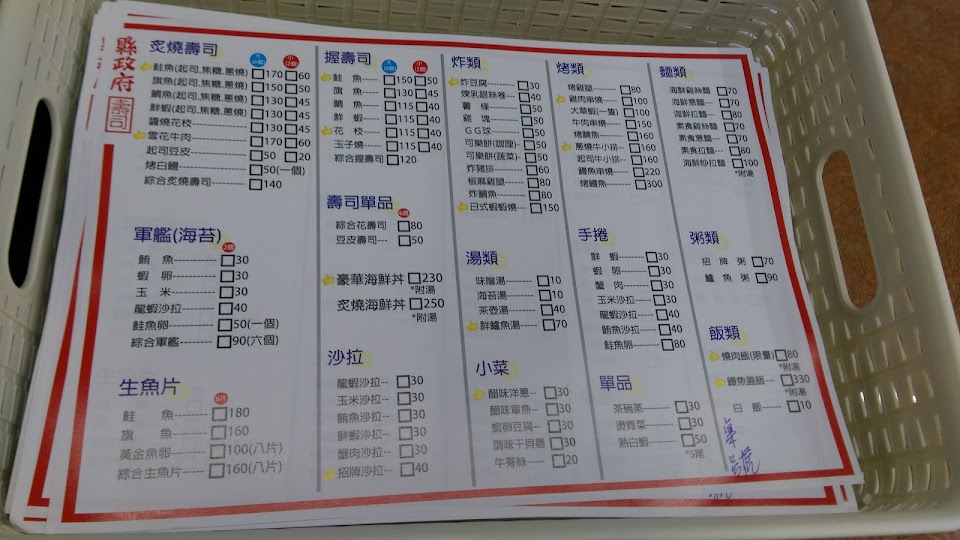 縣政府
壽司
炙燒壽司 大(6個) 小(2個)
鮭魚(起司,焦糖,蔥燒) 170 60
旗魚(起司,焦糖,蔥燒) 150 50
鯛魚(起司,焦糖,蔥燒) 130 45
鮮蝦(起司,焦糖,蔥燒) 130 45
醬燒花枝 130 45
雪花牛肉 170 60
起司豆皮 50 20
烤白鰻 50(一個)
綜合炙燒壽司 140
軍艦(海苔) 2個
鮪魚 30
蝦卵 30
玉米 30
龍蝦沙拉 40
鮭魚卵 50(一個)
綜合軍艦 90(六個)
生魚片 6片
鮭魚 180
旗魚 160
黃金魚卵 100(八片)
綜合生魚片 160(八片)
握壽司 大(6個) 小(2個)
鮭魚 150 50
旗魚 130 45
鯛魚 115 40
鮮蝦 115 40
花枝 115 40
玉子燒 115 40
綜合握壽司 120
壽司單品 6個
綜合花壽司 80
豆皮壽司 50
豪華海鮮丼 230
*附湯
炙燒海鮮丼 250
*附湯
沙拉
龍蝦沙拉 30
玉米沙拉 30
鮪魚沙拉 30
鮮蝦沙拉 30
蟹肉沙拉 30
招牌沙拉 40
炸類
炸豆腐 30
煉乳銀絲卷 40
薯條 50
雞塊 50
GG球 50
可樂餅(咖哩) 50
可樂餅(蔬菜) 50
炸豬排 60
椒麻雞腿 80
炸鯛魚 80
日式蝦蝦燒 150
湯類
味噌湯 10
海苔湯 10
茶壺湯 40
鮮鱸魚湯 70
小菜
醋味洋蔥 30
醋味章魚 30
蝦卵豆腐 30
調味干貝唇 30
牛蒡絲 20
烤類
烤雞腿 80
雞肉串燒 100
大草蝦(一隻) 100
牛肉串燒 150
烤鯛魚 160
蔥燒牛小排 160
起司牛小排 160
鰻魚串燒 220
烤鰻魚 300
手捲
鮮蝦 30
蝦卵 30
蟹肉 30
玉米沙拉 30
龍蝦沙拉 40
鮪魚沙拉 40
鮭魚卵 80
單品
茶碗蒸 30
燙青菜 30
熟白蝦 50
*5尾
麵類
海鮮雞絲麵 70
海鮮意麵 70
海鮮拉麵 70
素食雞絲麵 70
素食意麵 70
素食拉麵 80
海鮮炒拉麵 100
*附湯
粥類
招牌粥 70
鱸魚粥 90
飯類
燒肉飯(限量) 80
*附湯
鰻魚蓋飯 330
*附湯
白飯 10
桌
號